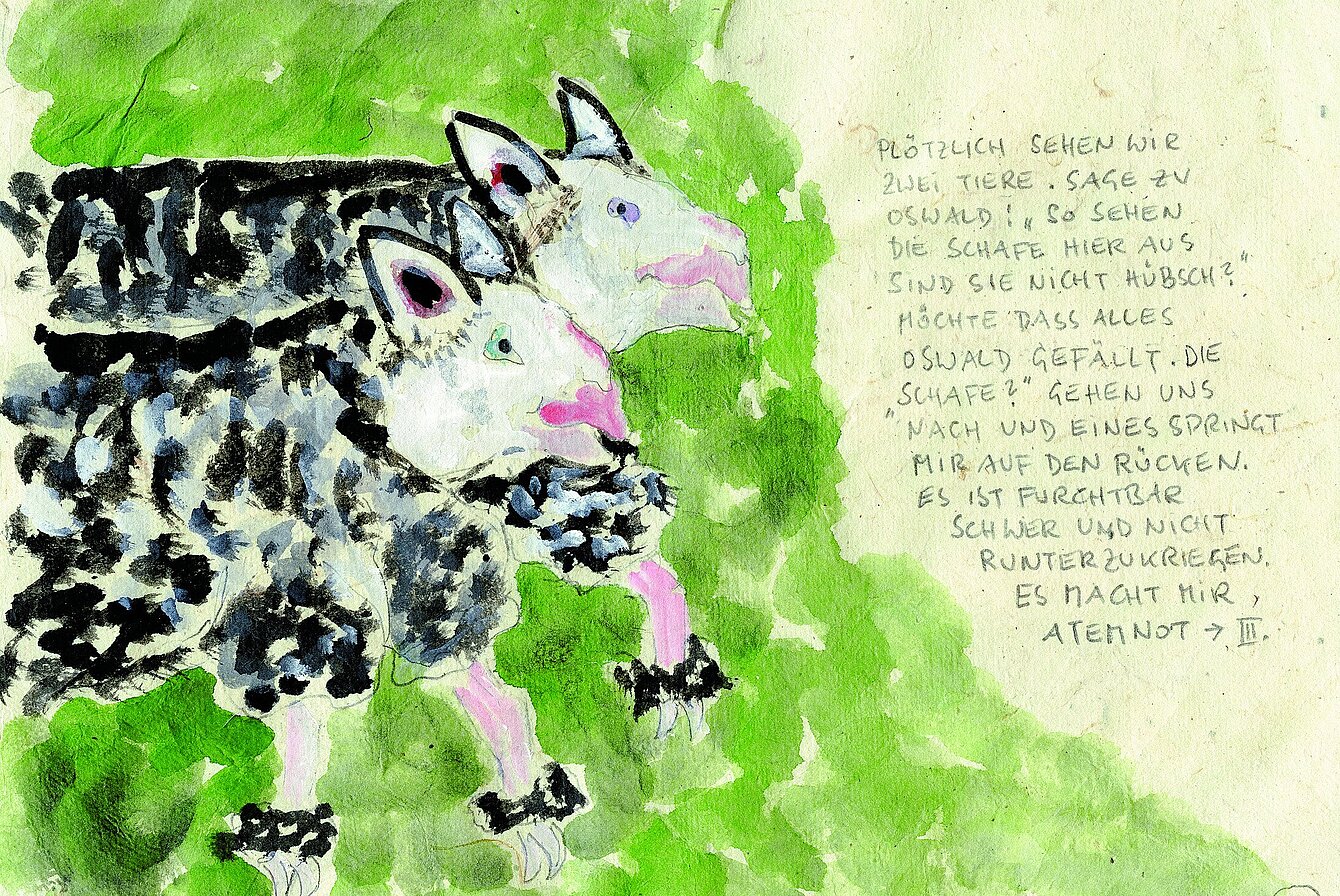 PLÖTZLICH SEHEN WIR
ZWEI TIERE. SAGE ZU
OSWALD: „SO SEHEN
DIE SCHAFE HIER AUS
SIND SIE NICHT HÜBSCH?"
MÖCHTE DASS ALLES
OSWALD GEFÄLLT. DIE
„SCHAFE?" GEHEN UNS
NACH UND EINES SPRINGT
MIR AUF DEN RÜCKEN.
ES IST FURCHTBAR
SCHWER UND NICHT
RUNTERZUKRIEGEN.
ES MACHT MIR
ATEMNOT → III.